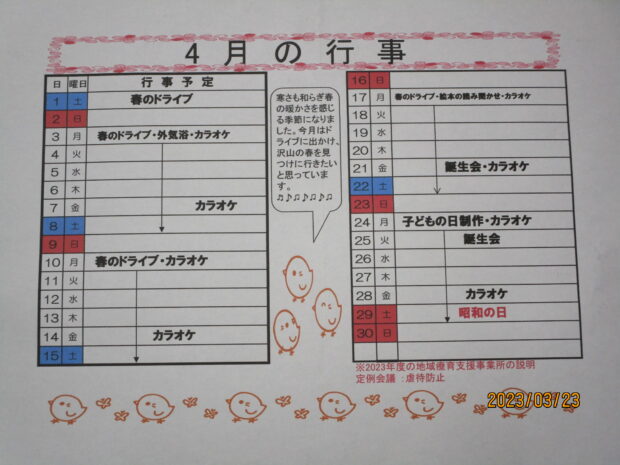 4月の行事
日 曜日 行事予定
1 土 春のドライブ
2 日
3 月 春のドライブ・外気浴・カラオケ
4 火
5 水
6 木
7 金 カラオケ
8 土
9 日
10 月 春のドライブ・カラオケ
11 火
12 水
13 木
14 金 カラオケ
15 土
寒さも和らぎ春
の暖かさを感じ
る季節になりま
した。今月はド
ライブに出かけ、
沢山の春を見
つけに行きたい
と思っていま
す。
♫♪♫♪♫♪♫
16 日
17 月 春のドライブ・絵本の読み聞かせ・カラオケ
18 火
19 水
20 木
21 金 誕生会・カラオケ
22 土
23 日
24 月 子どもの日制作・カラオケ
25 火 誕生会
26 水
27 木
28 金 カラオケ
29 土 昭和の日
30 日
※2023年度の地域療育支援事業所の説明
定例会議 :虐待防止
2023/03/23